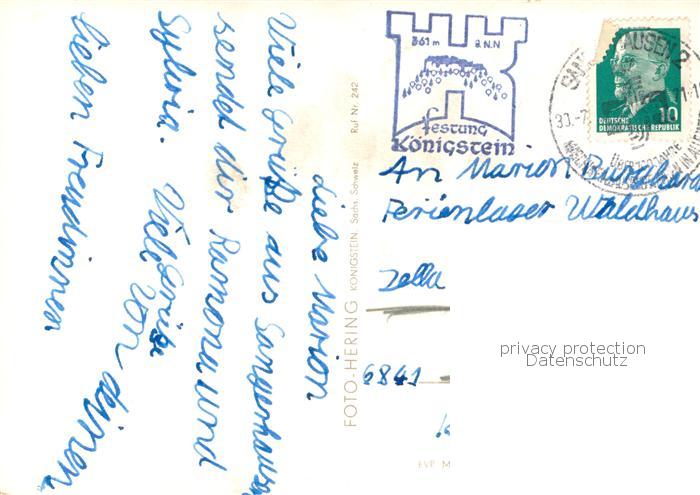 Liebe Marion
Viele Grüße aus Sangerhausen
sendet dir Ramona und
Sylvia. Viel Grüße
von deinen
lieben Freundinnen
FOTO-HERING KÖNIGSTEIN, Sächs. Schweiz Ruf Nr. 242
361 m ü.N.N
Festung
Königstein
SANGERHAUSEN 2
DEUTSCHE
DEMOKRATISCHE REPUBLIK
10
An Marion
Ferienlager Waldhaus
Zella
6841
EVP M
privacy protection
Datenschutz